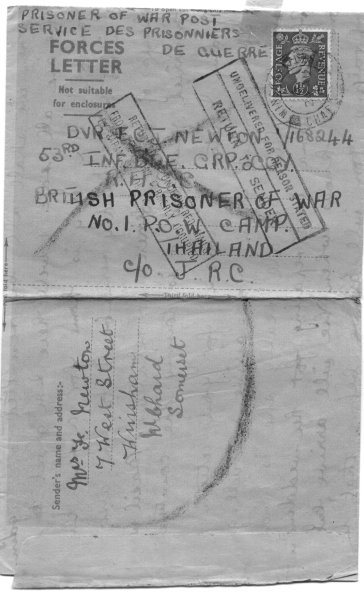 PRISONER OF WAR POST
SERVICE DES PRISONNIERS
DE GUERRE
FORCES
LETTER
Not suitable
for enclosures
POSTAGE
REVENUE
UNDELIVERED FOR REASON STATED
RETURN TO SENDER
DVR. F. C. NEWTON. 168244
53RD INF. BDE. GRP. COY
R.A.S.C
BRITISH PRISONER OF WAR
No. 1. P.O.W. CAMP.
THAILAND
c/o J.R.C.
Third fold here
Sender's name and address:-
Mrs Newton
7 West Street
Winsham
Nr Chard
Somerset